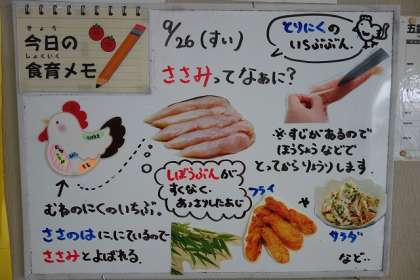 きょう
今日の
しょくいく
食育メモ
9/26(すい)
ささみってなぁに?
とりにくの
いちぶぶん。
※すじがあるので
ほうちょうなどで
とってからりょうりします。
しぼうぶんが
すくなく、
あっさりしたあじ
むねのにくのいちぶ。
ささのはににているので
ささみとよばれる。
フライ
や
サラダ
など‥